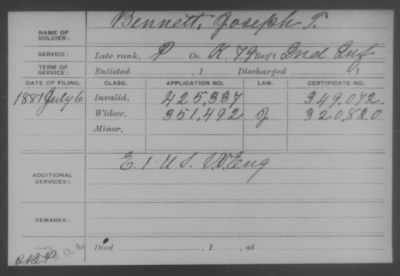 NAME OF SOLDIER: Bennett, Joseph T.
SERVICE: Late rank, P Co. K. 79 Reg't Ind Inf
TERM OF SERVICE: Enlisted , 1 Discharged , 1
DATE OF FILING. CLASS. APPLICATION NO. LAW. CERTIFICATE NO.
1881 July 6 Invalid, 425,337 349,072.
Widow, 351,492 320,820
Minor,
ADDITIONAL SERVICES: E 1 U.S. V.V. Eng
REMARKS:
Died , 1 , at